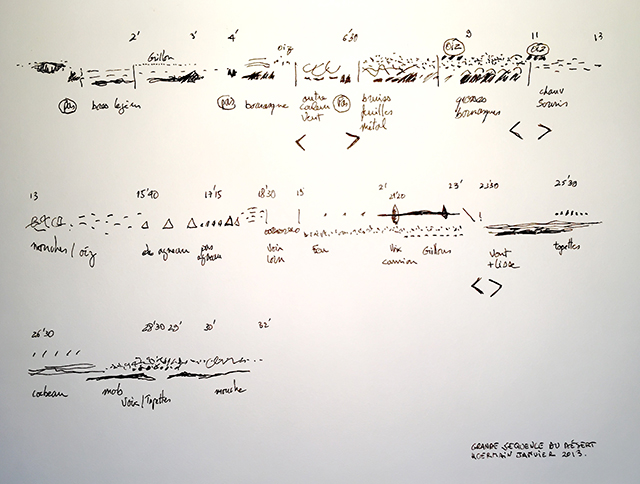 2' 3' 4' 6'30 9 11 13
Grillon oiz oiz oiz
pas bras légers pas bourrasque autre couleur vent pas bruits feuilles métal grosses bourrasques chauv souris
< > < >
13 15'40 17'15 18'30 19' 21' 21'20 23' 23'30 25'30
mouches / oiz de agneau pas agneau Voix loin Eau Voix camion Grillons Vent + Lisse tapettes
< >
26'30 28'30 29' 30' 32'
corbeau mob Voix/Tapettes mouche
GRANDE SEQUENCE DU DÉSERT
JANVIER 2013.